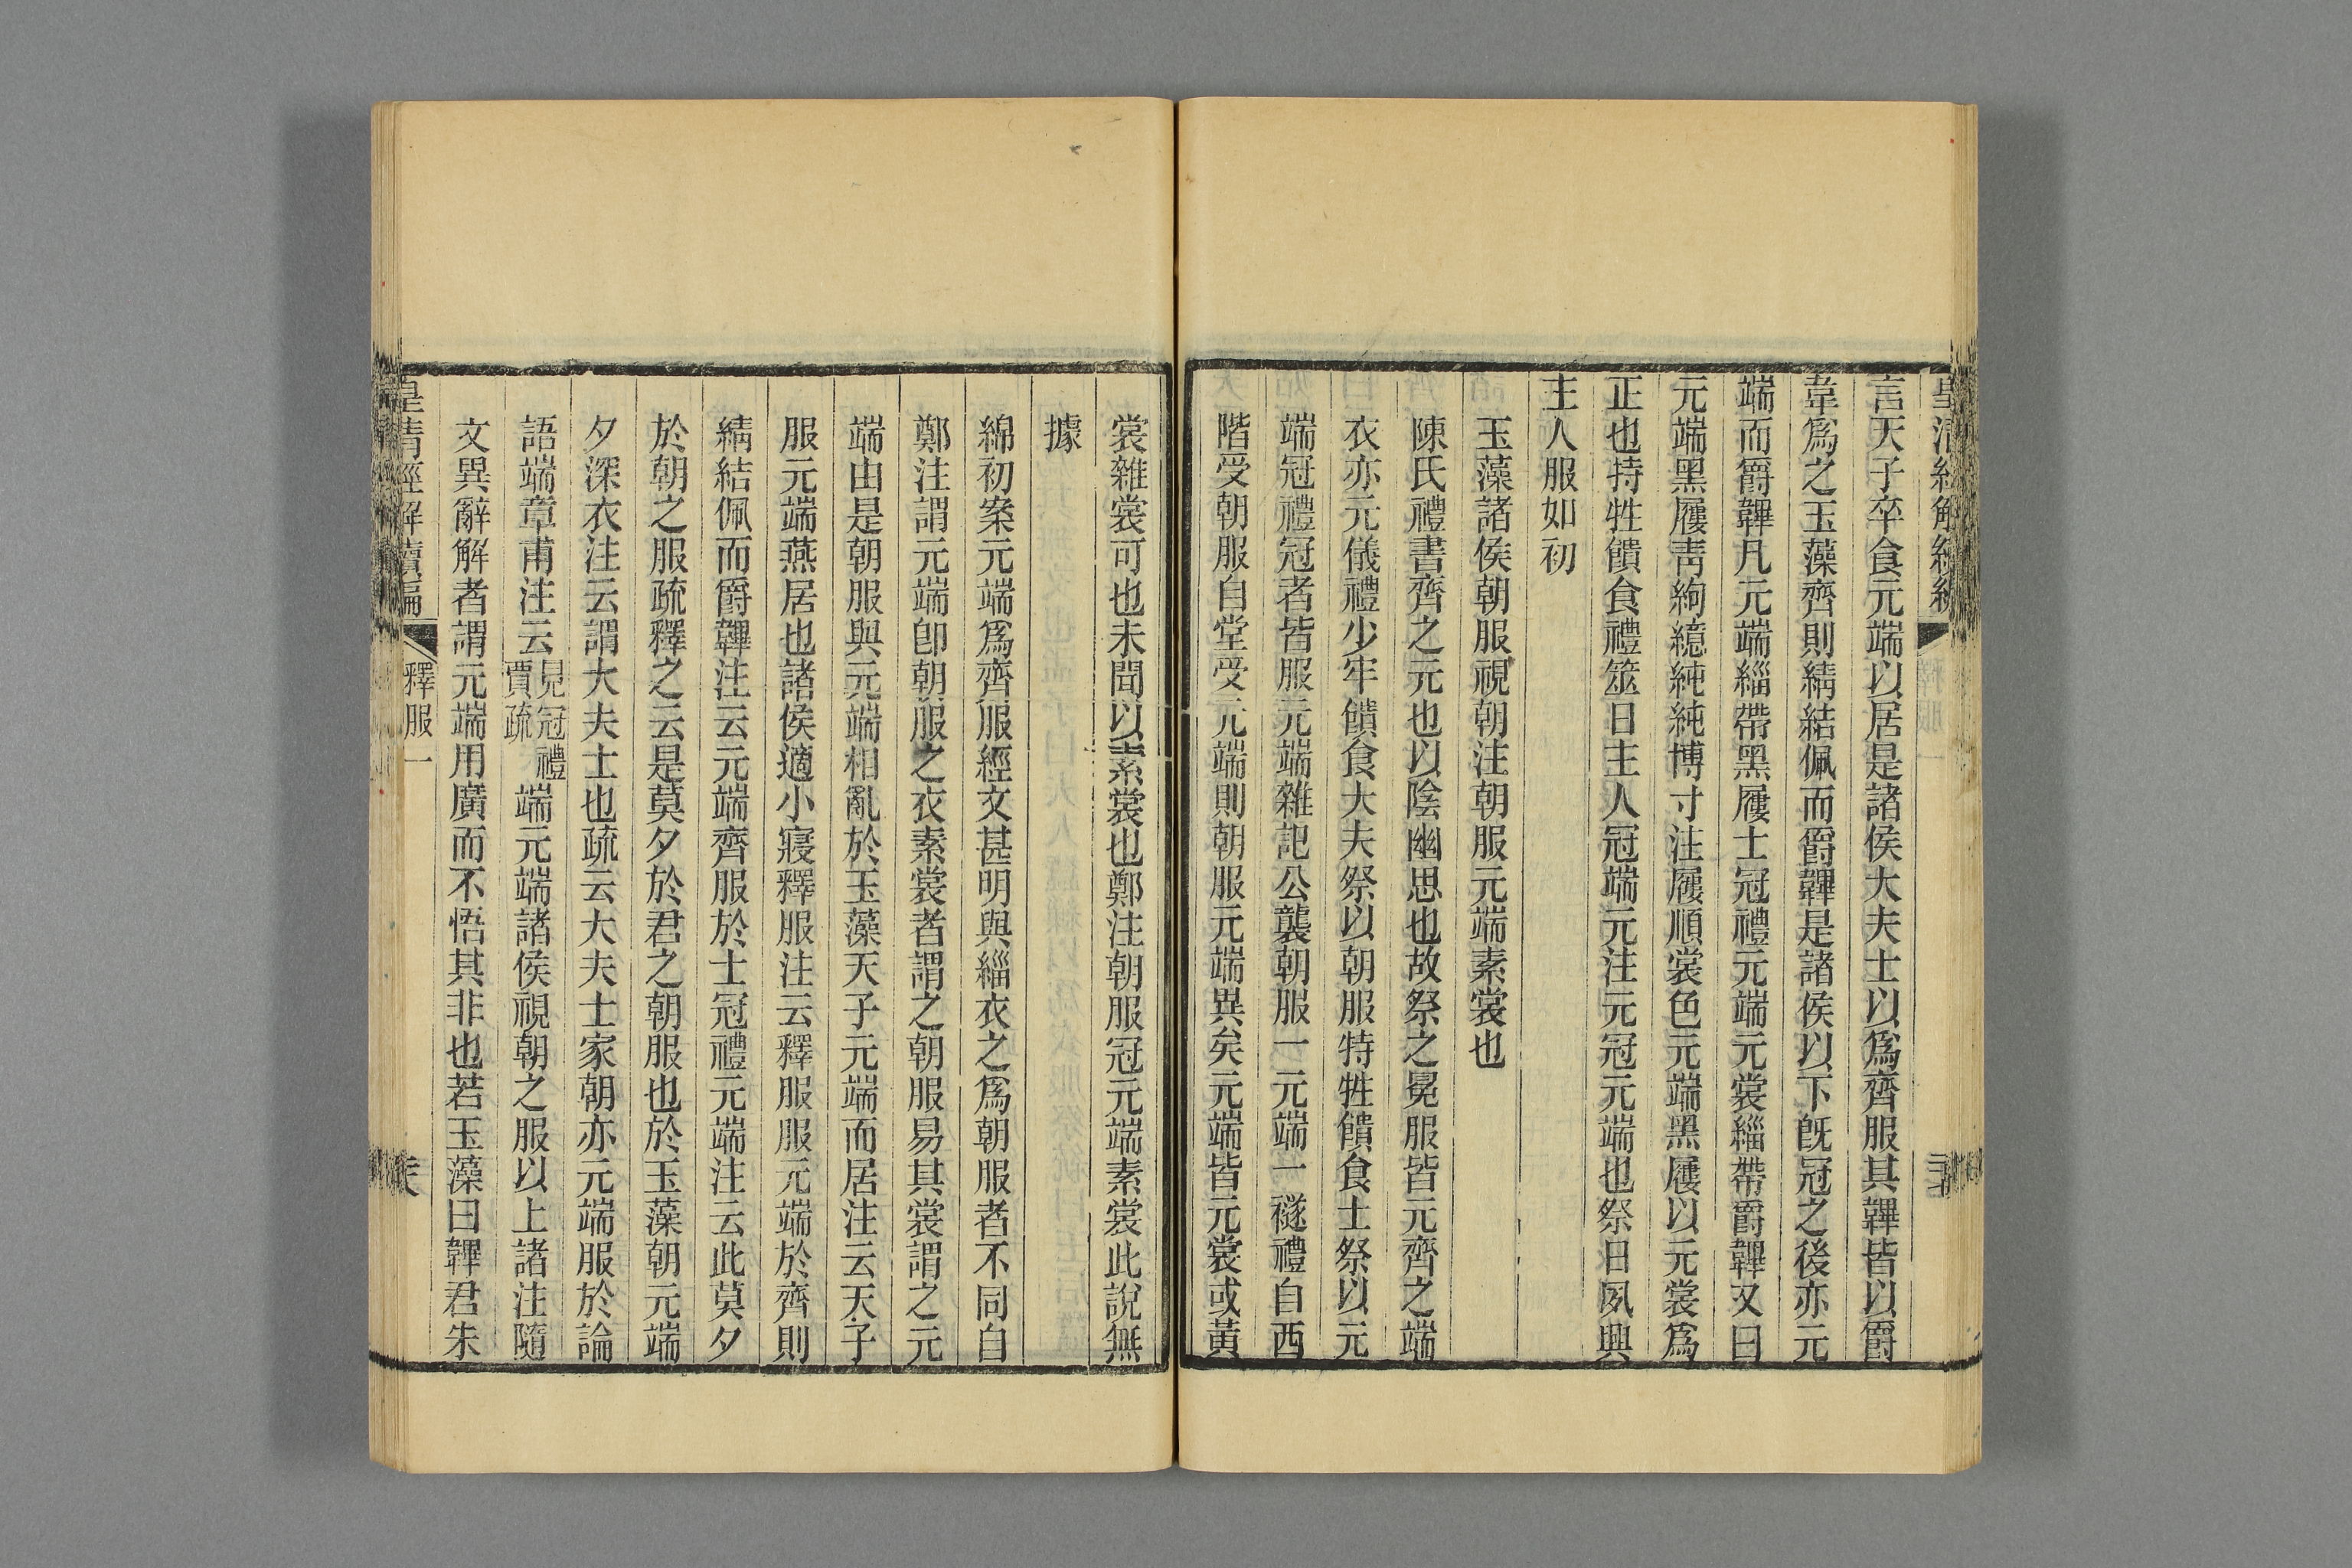 皇清經解續編
言天子卒食元端以居是諸侯大夫士以爲齊服其韠皆以爵
韋爲之玉藻齊則綪結佩而爵韠是諸侯以下旣冠之後亦元
端而爵韠凡元端緇帶黑屨士冠禮元端元裳緇帶爵韠又曰
元端黑屨靑絇繶純純博寸注屨順裳色元端黑屨以元裳爲
正也特牲饋食禮筮日主人冠端元注元冠元端也祭日夙興
主人服如初
玉藻諸侯朝服視朝注朝服元端素裳也
陳氏禮書齊之元也以陰幽思也故祭之冕服皆元齊之端
衣亦元儀禮少牢饋食大夫祭以朝服特牲饋食士祭以元
端冠禮冠者皆服元端雜記公襲朝服一元端一襚禮自西
階受朝服自堂受元端則朝服元端異矣元端皆元裳或黃
裳雜裳可也未聞以素裳也鄭注朝服冠元端素裳此說無
據
綿初案元端爲齊服經文甚明與緇衣之爲朝服者不同自
鄭注謂元端卽朝服之衣素裳者謂之朝服易其裳謂之元
端由是朝服與元端相亂於玉藻天子元端而居注云天子
服元端燕居也諸侯適小寢釋服注云釋服服元端於齊則
綪結佩而爵韠注云元端齊服於士冠禮元端注云此莫夕
於朝之服疏釋之云是莫夕於君之朝服也於玉藻朝元端
夕深衣注云謂大夫士也疏云大夫士家朝亦元端服於論
語端章甫注云見冠禮賈疏端元端諸侯視朝之服以上諸注隨
文異辭解者謂元端用廣而不悟其非也若玉藻曰韠君朱
皇淸經解續編
釋服一